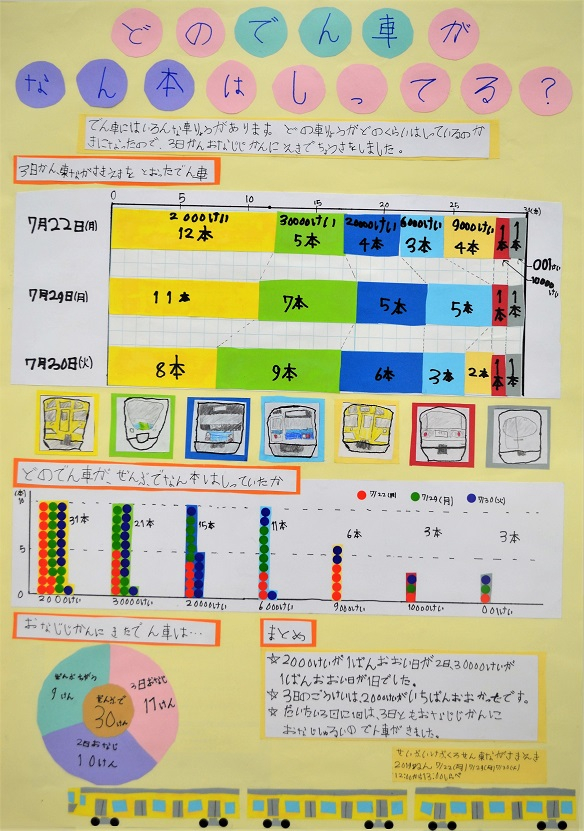 どのでん車が
なん本はしってる？
でん車にはいろんな車りょうがあります。どの車りょうがどのくらいはしっているのか
きになったので、3日かんおなじじかんにえきでちょうさをしました。
3日かん東ながさきえきをとおったでん車
0 5 10 15 20 25 30(本)
7月22日(月)
2000けい 12本
30000けい 5本
20000けい 4本
6000けい 3本
9000けい 4本
1本 1本
001けい
10000けい
7月29日(月)
11本 7本 5本 5本 1本 1本
7月30日(火)
8本 9本 6本 3本 2本 1本 1本
どのでん車がぜんぶでなん本はしっていたか
7/22(月) 7/29(月) 7/30(火)
(本)
10
5
0
31本 21本 15本 11本 6本 3本 3本
2000けい 30000けい 20000けい 6000けい 9000けい 10000けい 001けい
おなじじかんにきたでん車は…
ぜんぶちがう
9けん
3日おなじ
11けん
ぜんぶで
30けん
2日おなじ
10けん
まとめ
☆2000けいが1ばんおおい日が2日、30000けいが
1ばんおおい日が1日でした。
☆3日のごうけいは、2000けいがいちばんおおかったです。
☆だいたい3回に1回は、3日ともおなじじかんに
おなじしゅるいのでん車がきました。
せいぶいけぶくろせん東ながさきえき
2019ねん7/22(月)7/29(月)7/30(火)